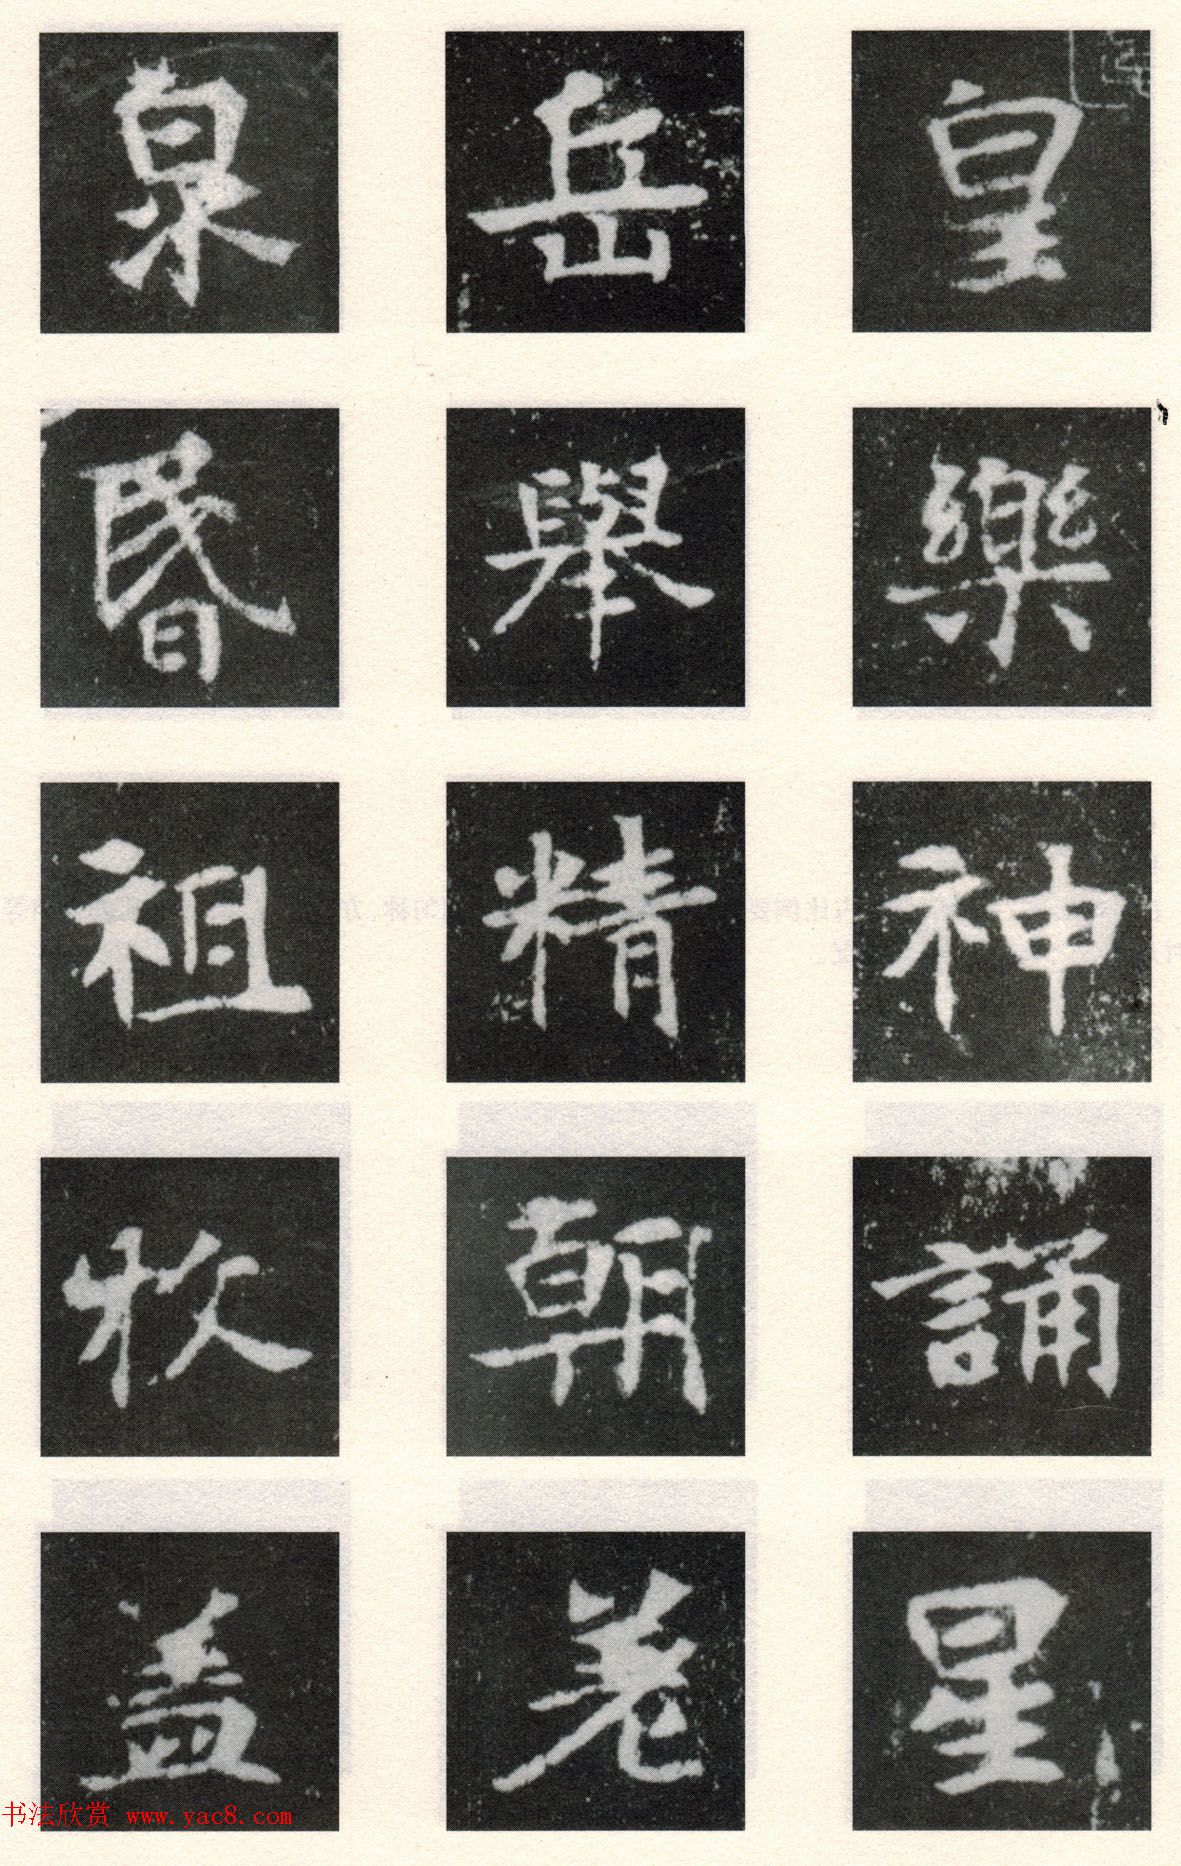 泉 岳 皇
昬 舉 樂
祖 精 神
牧 朝 誦
盖 羗 星
书法欣赏 www.yac8.com